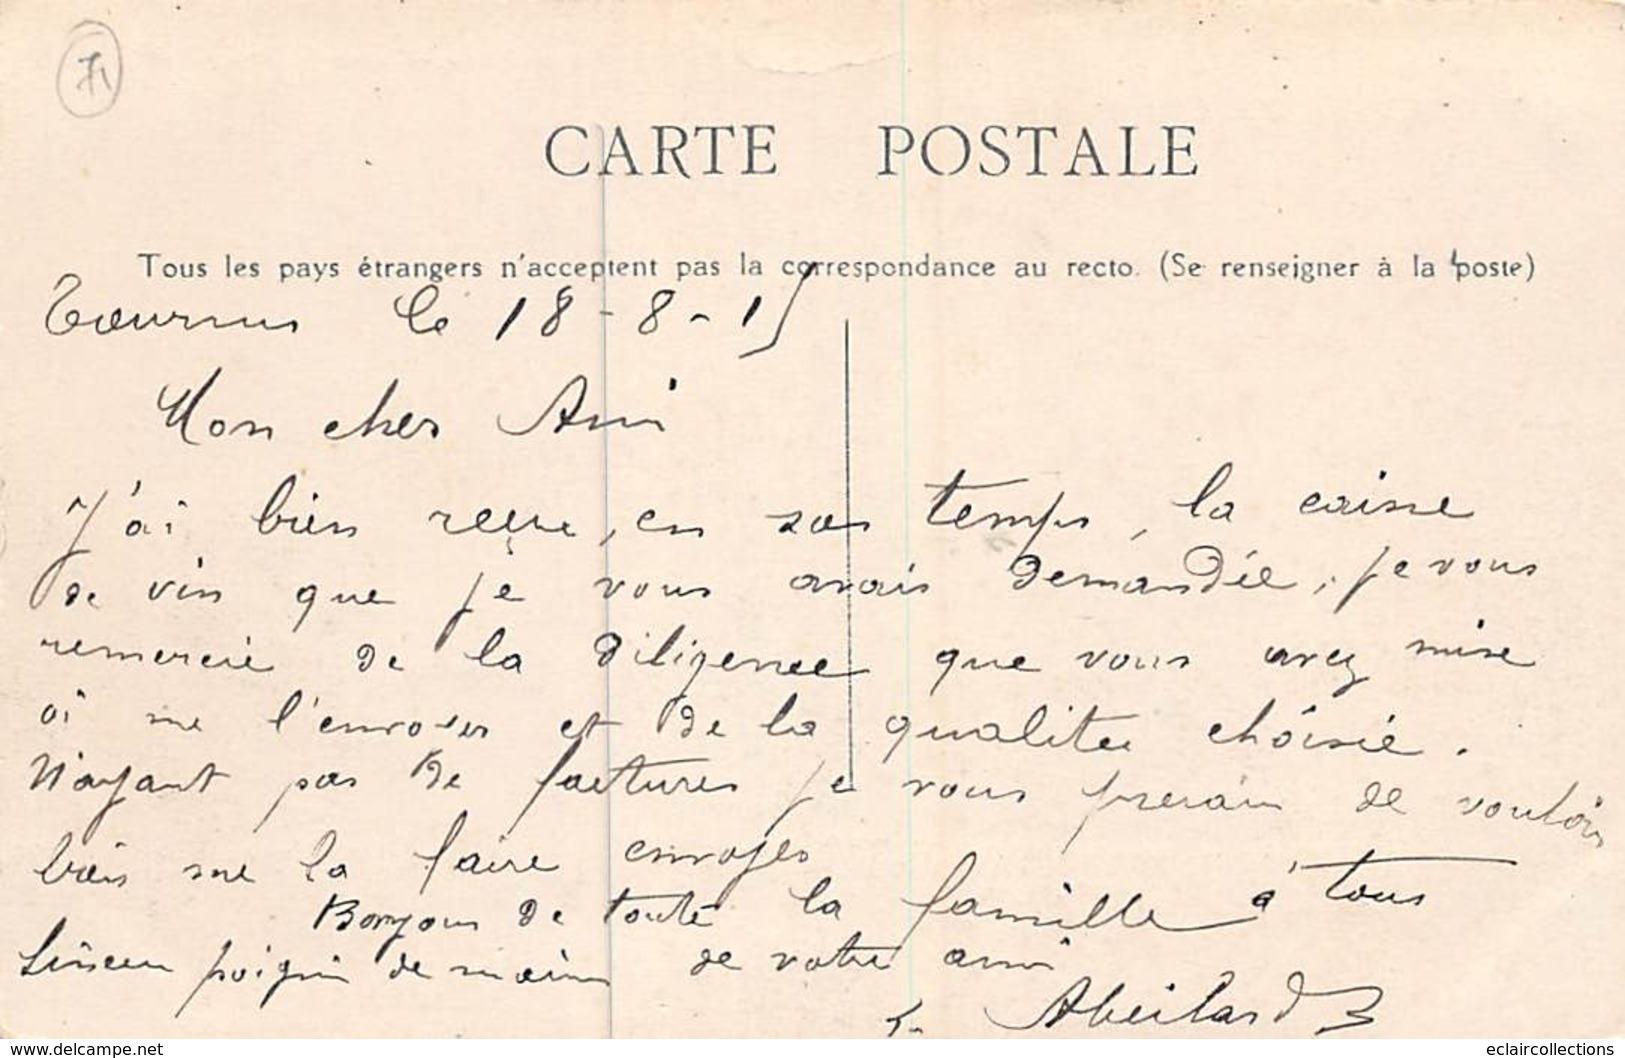 71
CARTE POSTALE
Tous les pays étrangers n'acceptent pas la correspondance au recto. (Se renseigner à la poste)
Tournus le 18-8-15
Mon cher Ami
J'ai bien reçue, en son temps, la caisse
de vin que je vous avais demandée, je vous
remercie de la diligence que vous avez mise
à me l'envoyer et de la qualitée choisie.
N'ayant pas de factures je vous prerais de vouloir
bien me la faire envoyer
Bonjour de toute la famille à tous
Sincer poigni de mains de votre ami
Abeilard
www.delcampe.net
eclaircollections